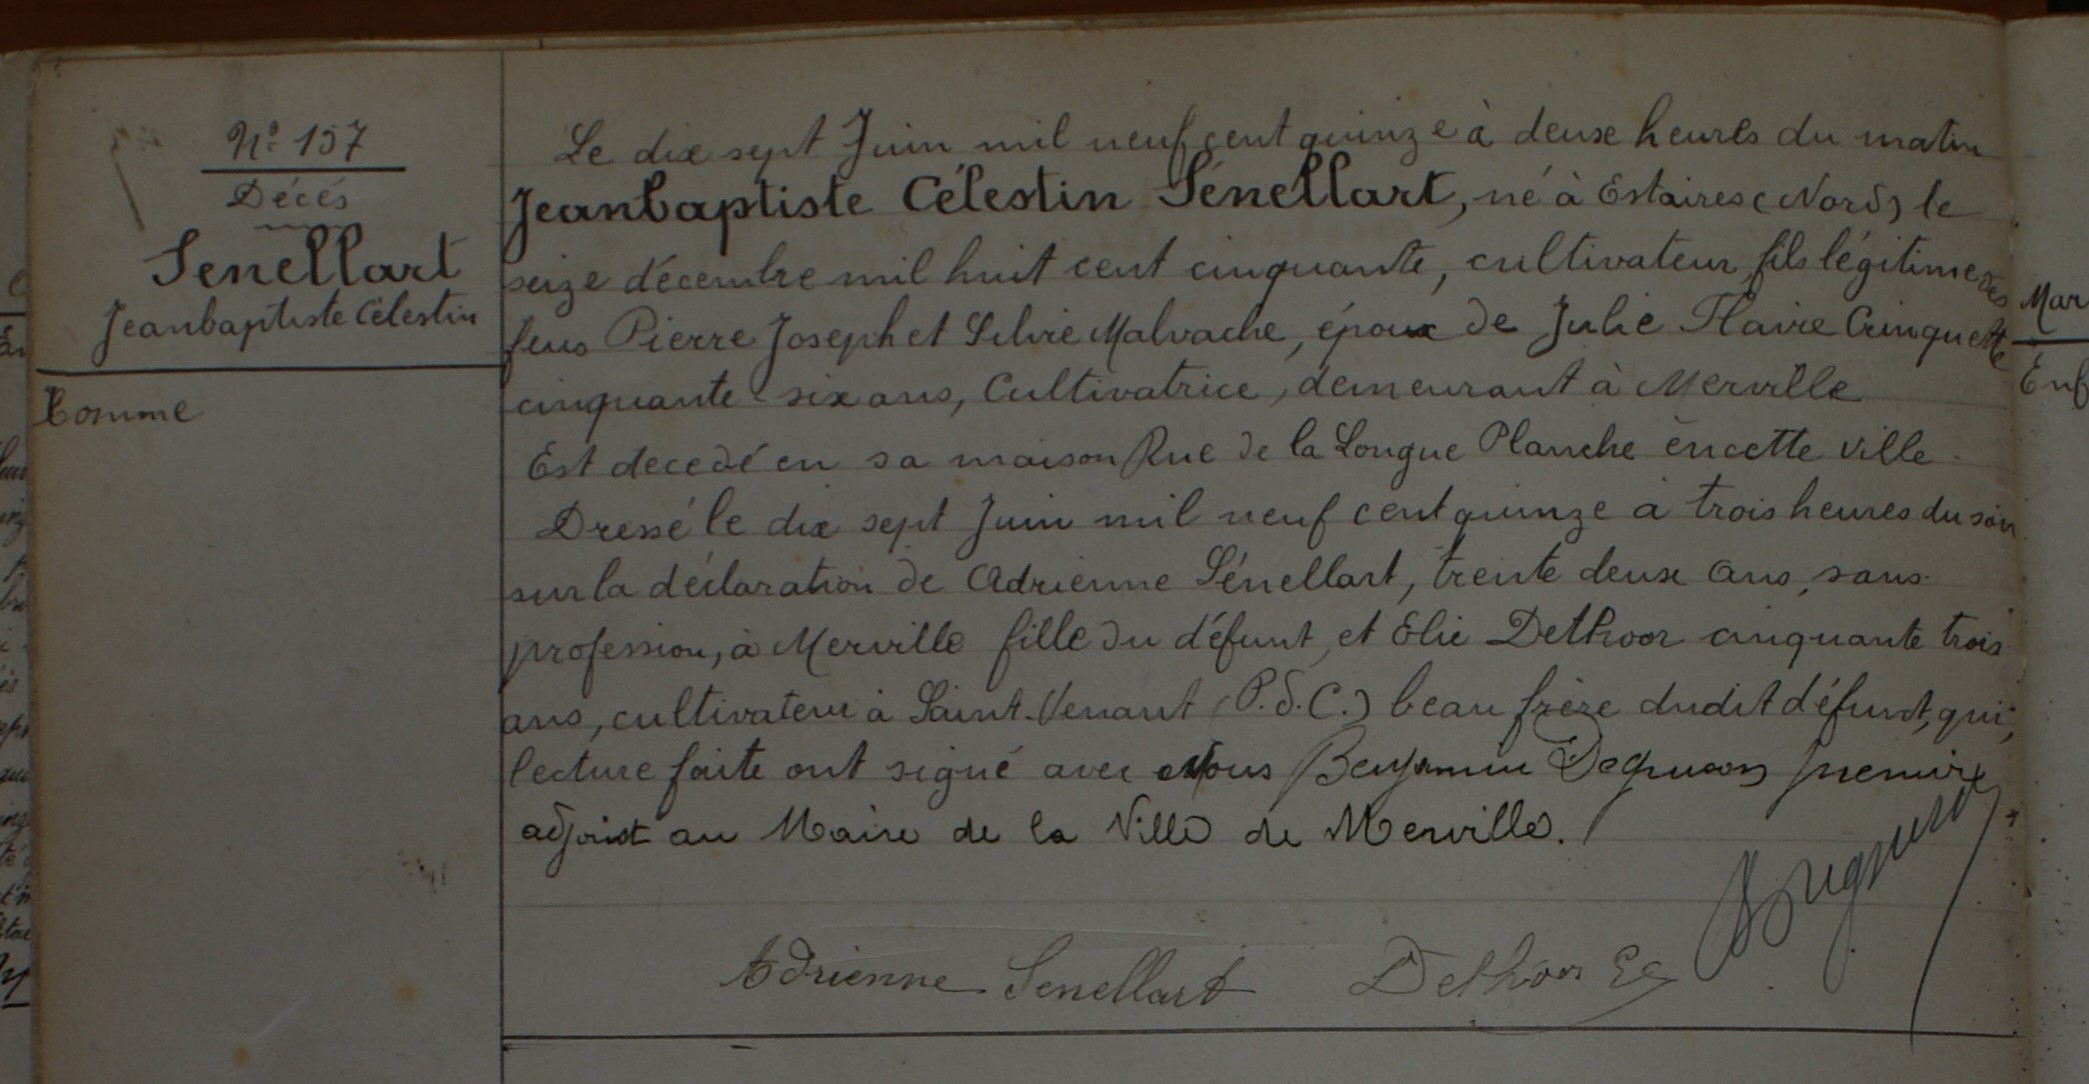 N° 157
Décés
Senellart
Jeanbaptiste Célestin
Homme
Le dix sept Juin mil neuf cent quinze à deux heures du matin
Jeanbaptiste Célestin Sénellart, né à Estaires (Nord) le
seize décembre mil huit cent cinquante, cultivateur fils légitime des
feus Pierre Joseph et Silvie Malvache, époux de Julie Flavie Crinquette
cinquante six ans, Cultivatrice, demeurant à Merville
Est decedé en sa maison Rue de la Longue Planche en cette ville.
Dressé le dix sept Juin mil neuf cent quinze a trois heures du soir
sur la déclaration de Adrienne Sénellart, trente deux ans, sans
profession, à Merville fille du défunt, et Elie Dethoor cinquante trois
ans, cultivateur à Saint-Venant (P.d.C.) beau frère dudit défunt, qui,
lecture faite ont signé avec Nous Benjamin premier
adjoint au Maire de la Ville de Merville.
Adrienne Senellart Dethoor
Mar
Enf